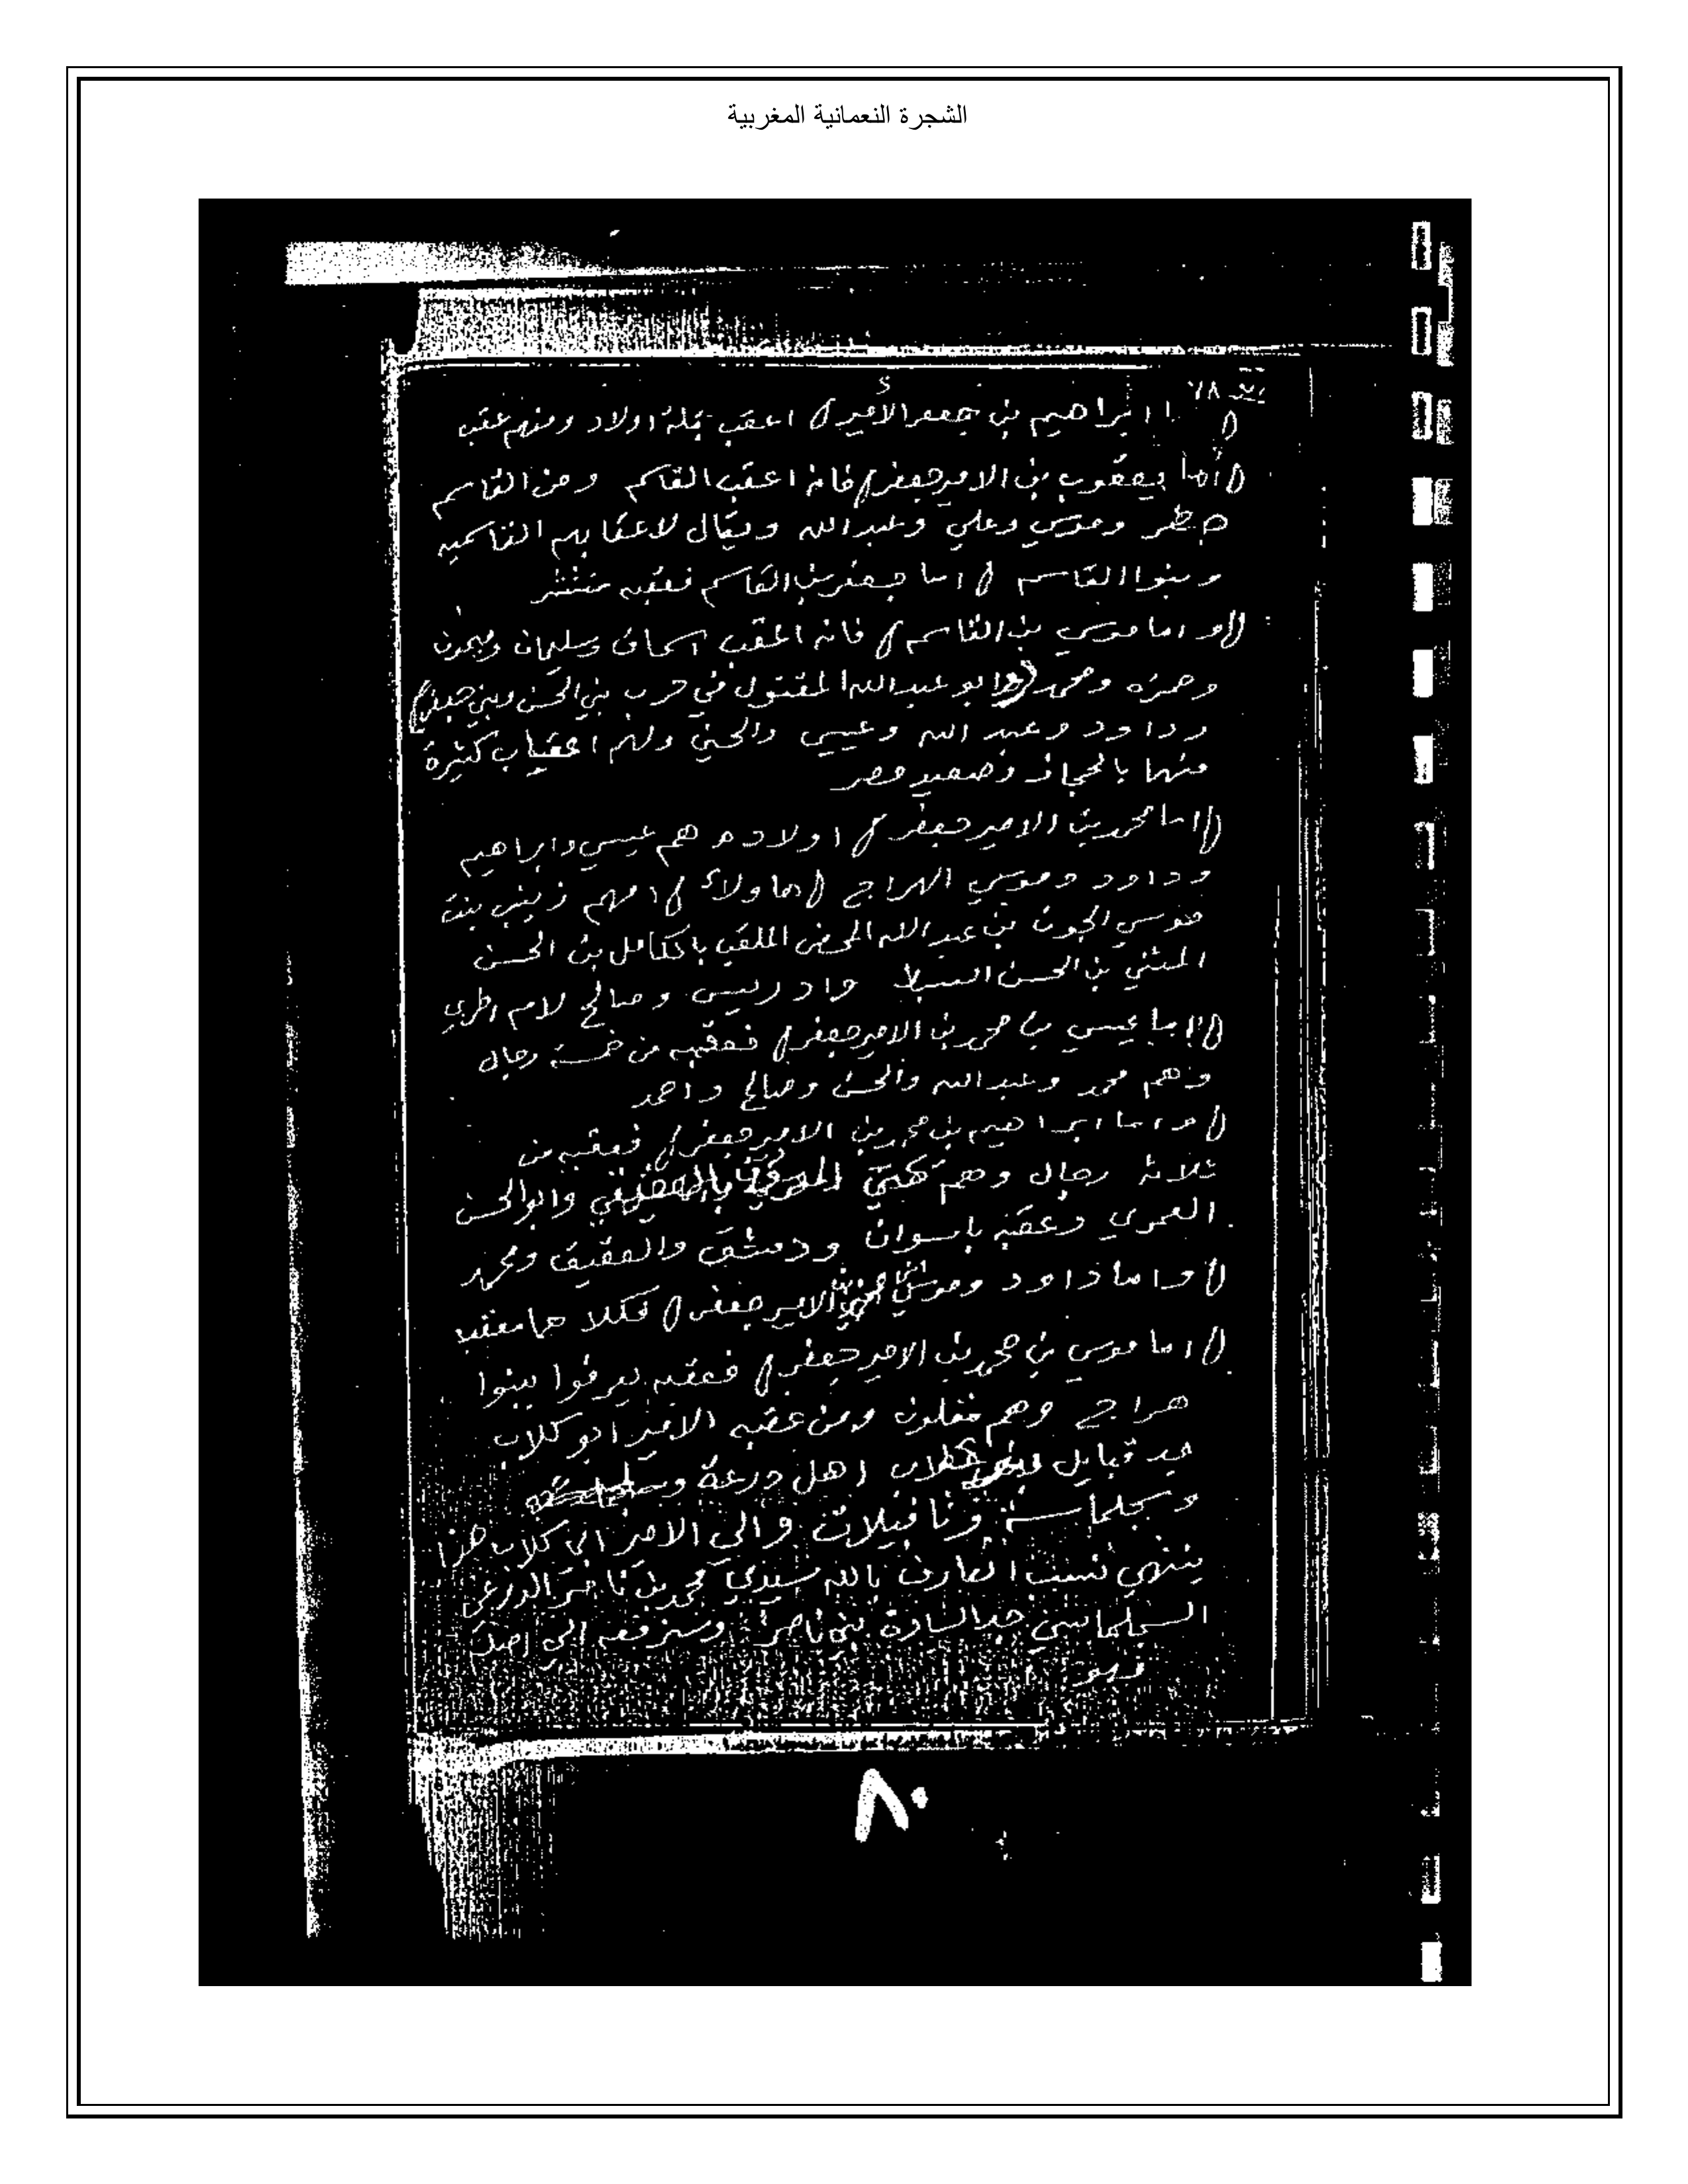 الشجرة النعمانية المغربية
٧٨
ابراهيم بن جعفر الأمير اعقب جملة اولاد ومنهم عقب
أما يعقوب بن الامير جعفر فانه اعقب القاسم ومن القاسم
وموسي وعلي وعبد الله ويقال لاعقابهم القاسميه
وبنوا القاسم اما جعفر بن القاسم فعقبه منتشر
واما موسي بن القاسم فانه اعقب اسحاق وسليمان
وحمزه ومحمد ابو عبد الله المقتول في حرب بني الحسن وبني جعفر
وداود وعبد الله وعيسي والحسن ولهم اعقاب كثيرة
منها بالحجاز وصعيد مصر
اما محمد بن الامير جعفر اولاده هم عيسي وابراهيم
وداود وموسي الهراج هاولاء امهم زينب بنت
موسي الجون بن عبد الله المحض الملقب بالكامل بن الحسن
المثني بن الحسن السبط وادريس وصالح لام اخري
اما عيسي بن محمد بن الامير جعفر فعقبه من خمسة رجال
وهم محمد وعبد الله والحسن وصالح واحمد
واما ابراهيم بن محمد بن الامير جعفر فعقبه من
ثلاثه رجال وهم يحيي وابو الحسن
العمري وعقبه باسوان ودمشق والعقيق ومحمد
واما داود وموسي الامير جعفر فكلاهما معقب
اما موسي بن محمد بن الامير جعفر فعقبه يعرفوا ببنوا
هراج وهم مقلون ومن عقبه الامير ابو كلاب
جد قبايل كلاب اهل درعة
وسجلماسة وتافيلات والي الامير ابي كلاب هذا
ينتهي نسب العارف بالله سيدي محمد بن ناصر الدرعي
السجلماسي جد السادة بني ناصر وسنرفعه الي اصله
فهو
٨٠